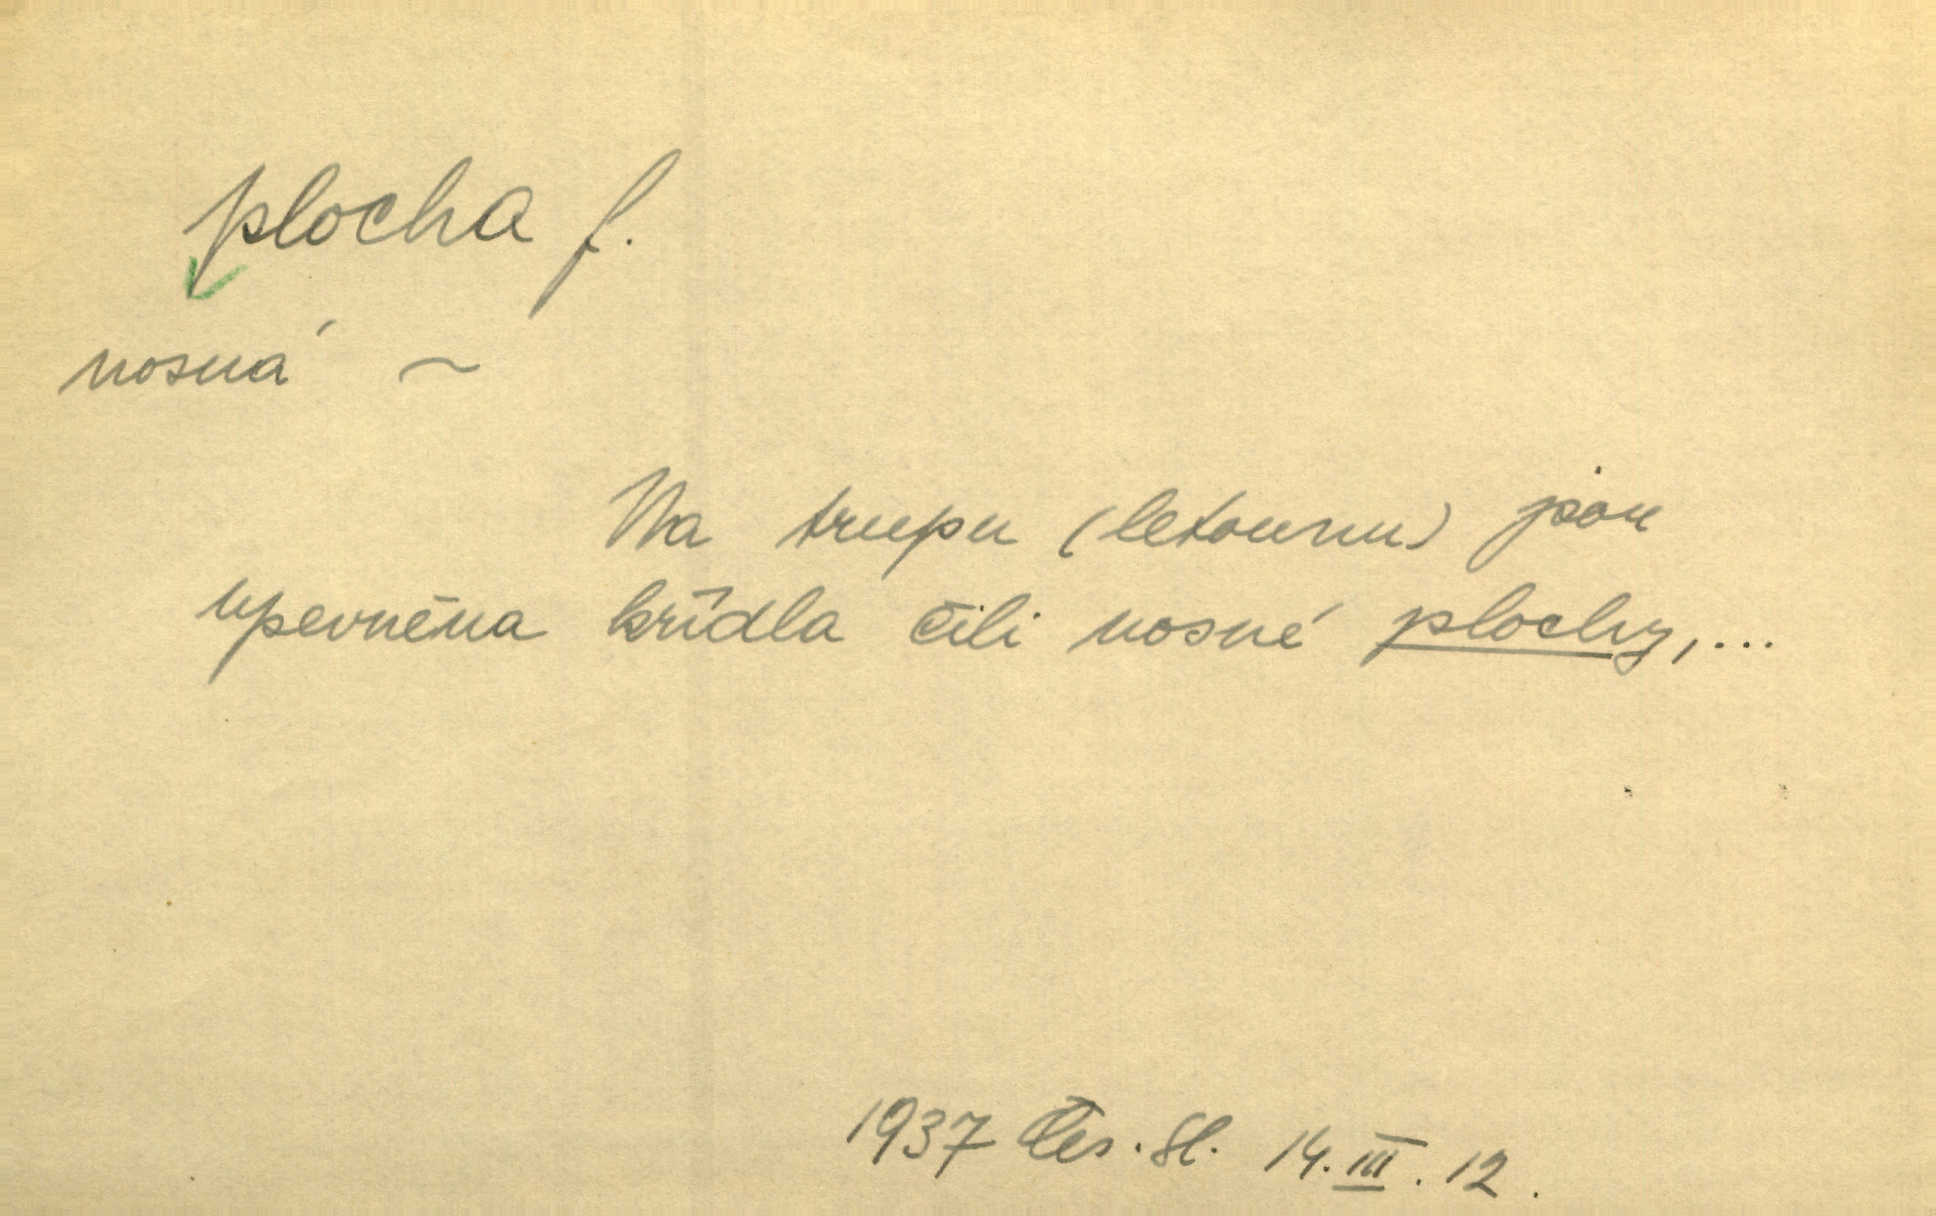 plocha f.
nosná ~
Na trupu (letounu) jsou
upevněna křídla čili nosné plochy,...
1937 Čes. sl. 14.III.12.